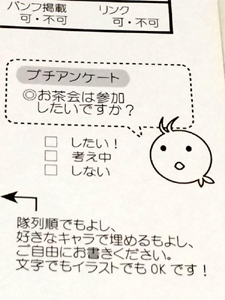 パンフ掲載 リンク
可・不可 可・不可
プチアンケート
◎お茶会は参加
したいですか？
□ したい！
□ 考え中
□ しない
隊列順でもよし、
好きなキャラで埋めるもよし、
ご自由にお書きください。
文字でもイラストでもOKです！